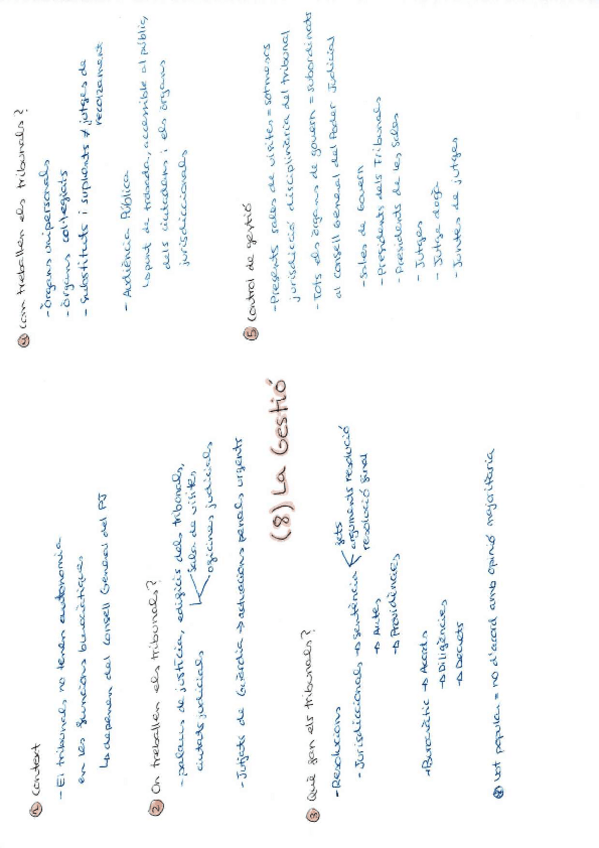 (8) La Gestió
① Context
- El tribunals no tenen autonomia
en les funcions burocràtiques
↳ depenen del Consell General del PJ
② On treballen els tribunals?
- palaus de justícia, edificis dels tribunals,
ciutats judicials
sala de vistes
oficines judicials
- Jutjats de Guàrdia → actuacions penals urgents
③ Què fan els tribunals?
- Resolucions
- Jurisdiccionals → sentència
fets
arguments resolució
resolució final
→ Autes
→ Providències
+ Burocràtic → Acords
→ Diligències
→ Decrets
⊛ Vot popular = no d'acord amb opinió majoritària
④ Com treballen els tribunals?
- Òrgans unipersonals
- Òrgans col·legiats
- Substituts i suplents ≠ jutges de
- Audiència Pública
↳ punt de trobada, accessible al públic,
dels ciutadans i els òrgans
jurisdiccionals
⑤ Control de gestió
- Presents sales de visites = sotmeses
jurisdicció disciplinària del tribunal
- Tots els òrgans de govern = subordinats
al Consell General del Poder Judicial
- Sales de Govern
- Presidents dels Tribunals
- Presidents de les Sales
- Jutges
- Jutge degà
- Juntes de jutges